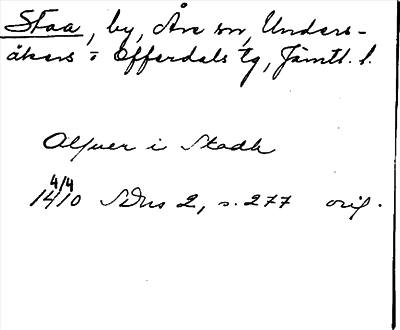 Staa, by, Åre sn, Unders-
åkers o Offerdals tg, Jämtl. l.
Olfuer i Stadh
4/4
1410 SDns 2, s. 277 orig.